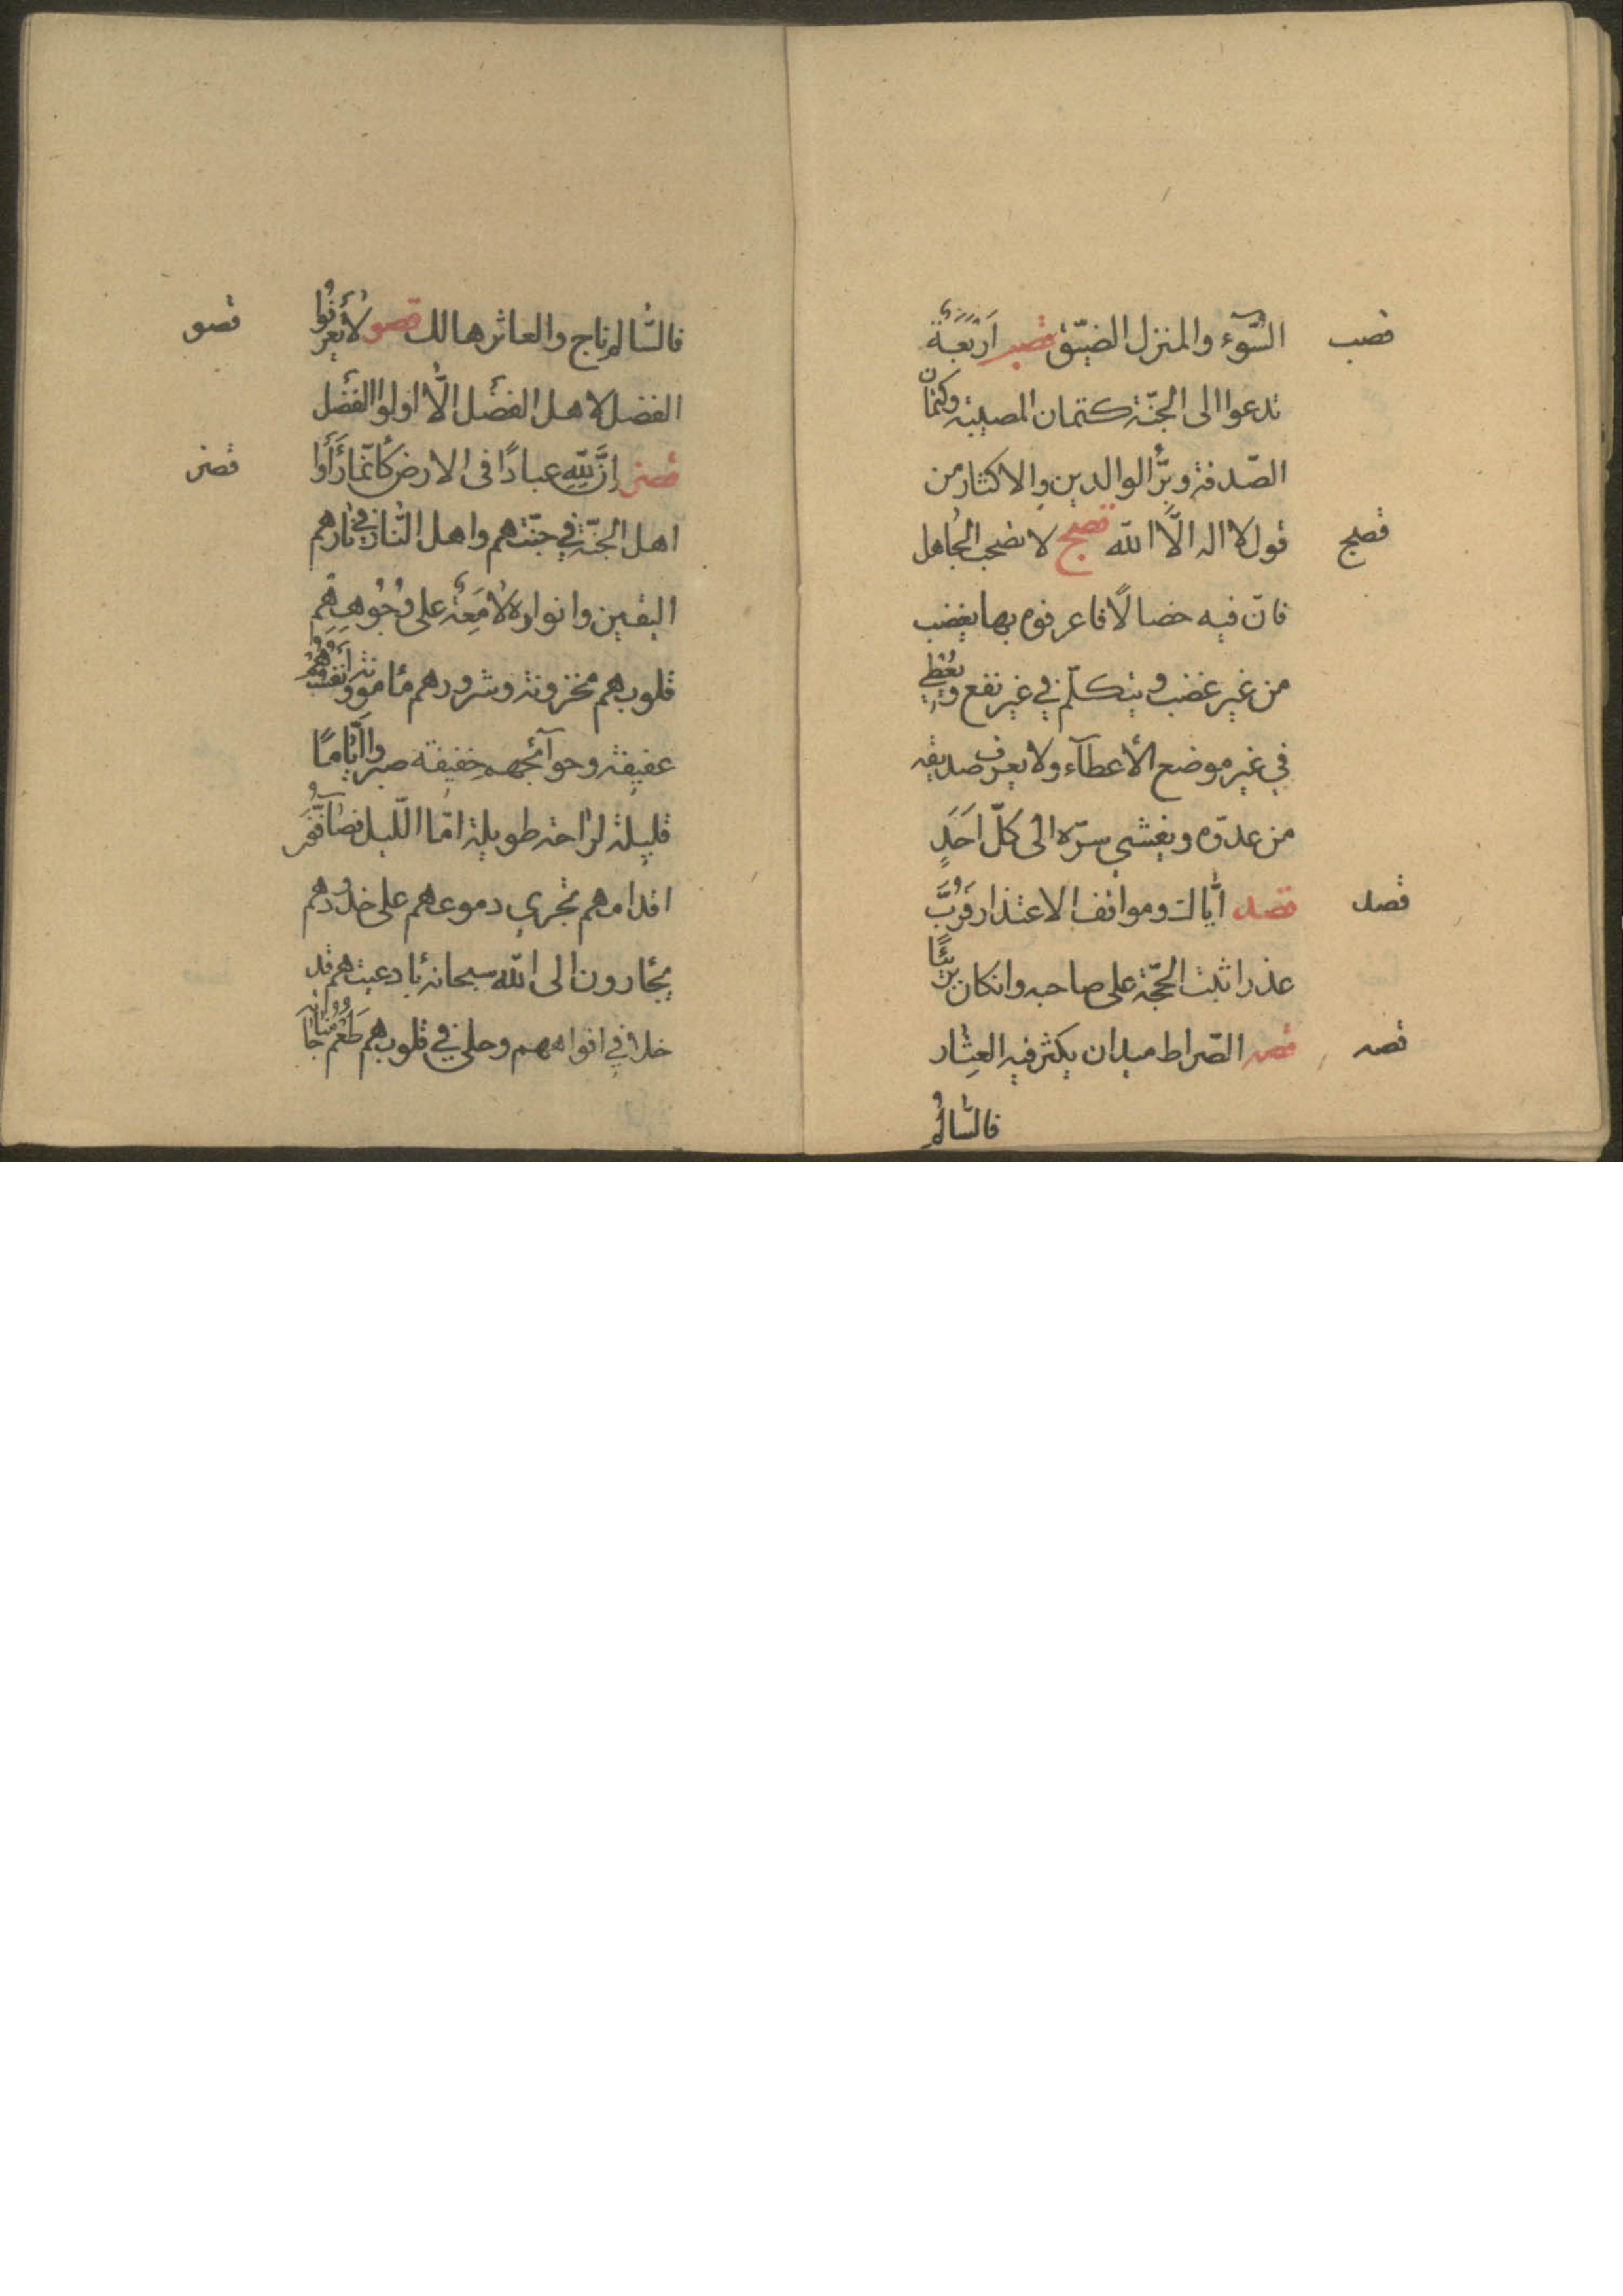 قصب
السُّوٓء والمنزل الضيّق قصب اَرْبَعَةٌ
تدعوا الى الجنّة كتمان المصيبة وكتمان
الصّدقة وبرُّ الوالدين والاكثار من
قصج
قول لا اله الّا الله قصج لا تصحب الجاهل
فانّ فيه خصالًا فاعرفوه بها يغضب
من غير غضب ويتكلّم في غير نفع ويُعْطِي
في غير موضع الأعطآء ولا يعرف صديقه
من عدوّه ويفشي سرّه الى كلّ اَحَدٍ
قصد
قصد ايّاك ومواقف الاعتذار فَرُبَّ
عذر اثبت الحجّة على صاحبه وانكان برئًا
قصه
قصه الصّراط ميدان يكثر فيه العِثار
فالسّالمُ
قصو
فالسّالم ناج والعاثر هالك قصو لا يعرفُ
الفضل لاهل الفضل الّا اولوا الفضل
قصز
قصز اِنَّ لِلّهِ عبادًا فى الارض كأنّما رَأَوا
اهل الجنّة في جنّتهم واهل النّار في نارهم
اليقين وانواره لامَعِةٌ على وُجُوهِهِم
قلوبهم محزونة وشرورهم مأمونة وانَفُسُهُمْ
عفيفة وحوآئجهم خفيفة صبروا اَيّامًا
قليلة لراحة طويلة امّا اللّيل فصآفّون
اقدامهم تجري دموعهم على خدودهم
يجٔارون الى الله سبحانه بادعيتهم قد
حلا في افواههم وحلى في قلوبهم طَعْمُ مُناجاته